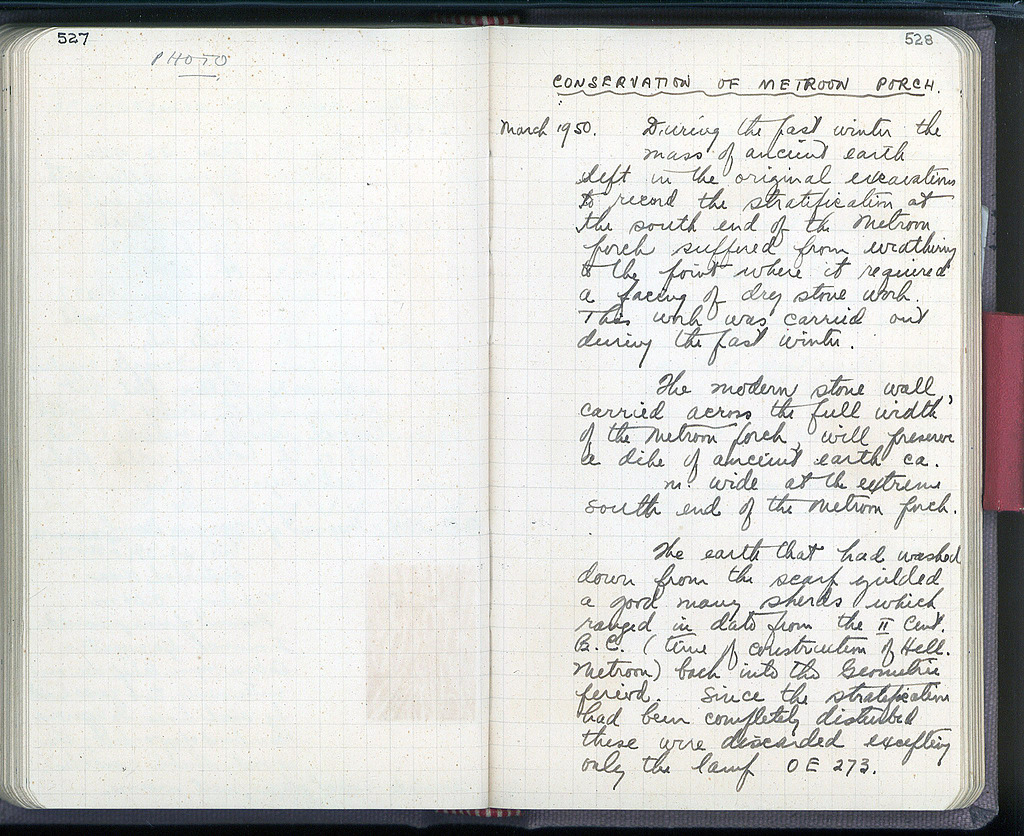 527
PHOTO
528
CONSERVATION OF METROON PORCH.
March 1950. During the past winter the
mass of ancient earth
left in the original excavations
to record the stratification at
the south end of the Metroon
porch suffered from weathering
to the point where it required
a facing of dry stone work.
This work was carried out
during the past winter.
The modern stone wall,
carried across the full width
of the Metroon porch, will preserve
a dike of ancient earth ca.
m. wide at the extreme
south end of the Metroon porch.
The earth that had washed
down from the scarp yielded
a good many sherds which
ranged in date from the II Cent.
B.C. (time of construction of Hell.
Metroon) back into the Geometric
period. Since the stratification
had been completely disturbed
these were discarded excepting
only the lamp OE 273.